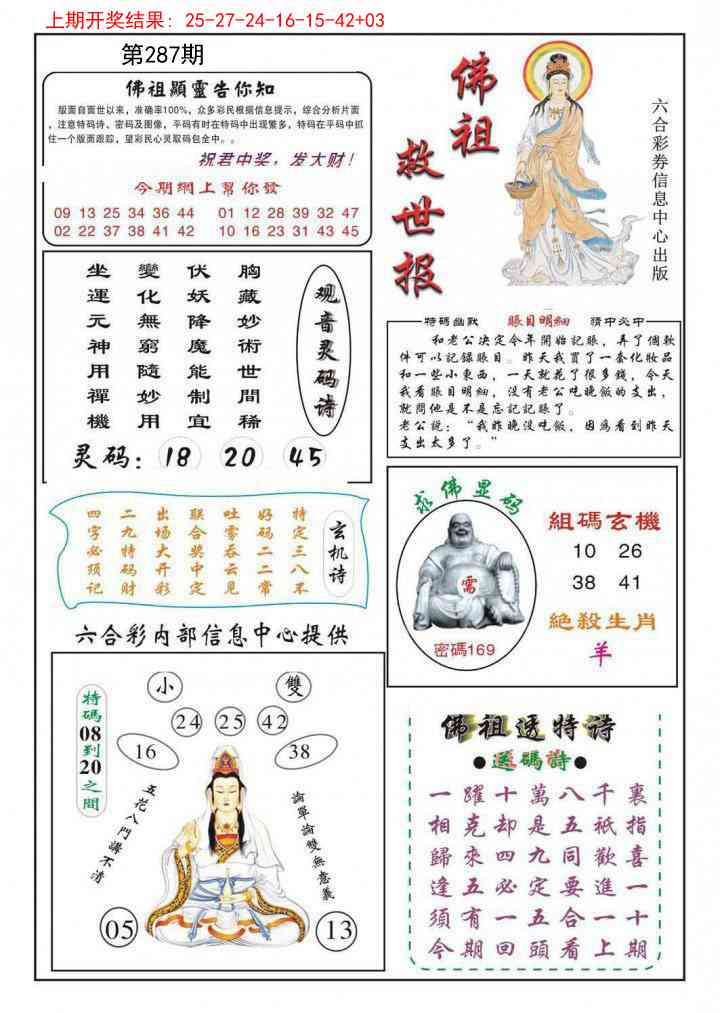 上期开奖结果: 25-27-24-16-15-42+03
第287期
佛祖顯靈告你知
版面自面世以来，准确率100%，众多彩民根据信息提示，综合分析片面
，注意特码诗、密码及图像，平码有时在特码中出现繁多，特码在平码中抓
住一个版面跟踪，望彩民心灵取码包全中。。
祝君中奖，发大财！
今期網上幫你發
09 13 25 34 36 44 01 12 28 39 32 47
02 22 37 38 41 42 10 16 23 31 43 45
佛祖救世报
六合彩券信息中心出版
观音灵码诗
胸藏妙術世間稀
伏妖降魔能制宜
變化無窮隨妙用
坐運元神用禪機
灵码： 18 20 45
特碼幽默 賬目明細 猜中必中
和老公决定今年開始記賬，弄了個軟
件可以記録賬目。昨天我買了一套化妝品
和一些小東西，一天就花了很多錢，今天
我看賬目明細，没有老公吃晚飯的支出，
就問他是不是忘記記賬了。
老公説：“我昨晚没吃飯，因爲看到昨天
支出太多了。”
玄机诗
特定三八不
好码二二常
吐雾吞云见
联合奖中定
出场大开彩
二九特码财
四字必须记
求佛显码
需
密碼169
組碼玄機
10 26
38 41
絶殺生肖
羊
六合彩内部信息中心提供
特碼08到20之間
小 雙
24 25 42
16 38
五花八門講不清
論單論雙無意義
05 13
佛祖透特诗
●送碼詩●
一躍十萬八千裏
相克却是五衹指
歸來四九同歡喜
逢五必定要進一
須有一五合一十
今期回頭看上期